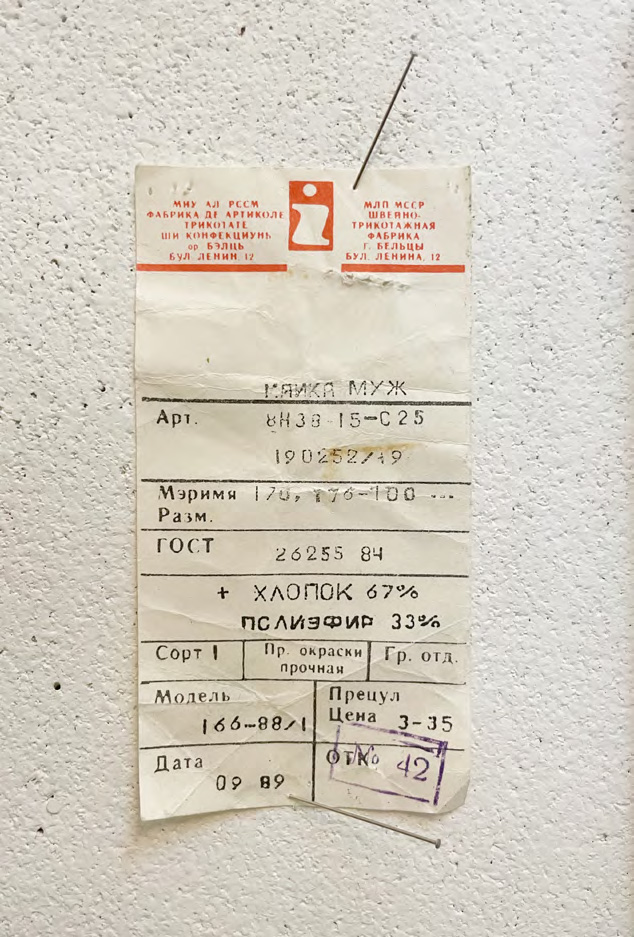 МИУ АЛ РССМ
ФАБРИКА ДЕ АРТИКОЛЕ
ТРИКОТАТЕ
ШИ КОНФЕКЦИУНЬ
ор БЭЛЦЬ
БУЛ ЛЕНИН 12
МЛП МССР
ШВЕЙНО-
ТРИКОТАЖНАЯ
ФАБРИКА
Г. БЕЛЬЦЫ
БУЛ. ЛЕНИНА, 12
МАЙКА МУЖ
Арт. 8Н38-15-С25
190252/19
Мэримя 170, 176-100
Разм.
ГОСТ 26255 84
+ ХЛОПОК 67%
ПОЛИЭФИР 33%
Сорт 1
Пр. окраски
прочная
Гр. отд.
Модель
166-88/1
Прецул
Цена 3-35
Дата
09 89
ОТК
№ 42